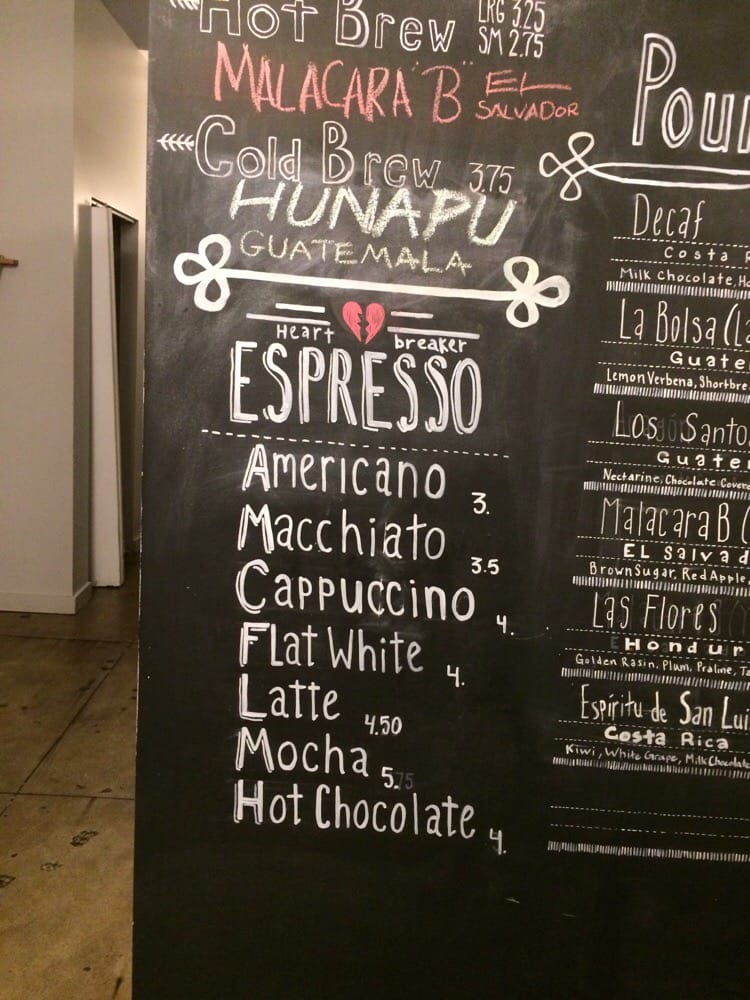 Hot Brew LRG 3.25
SM 2.75
MALACARA "B" EL
SALVADOR
Cold Brew 3.75
HUNAPU
GUATEMALA
Heart breaker
ESPRESSO
Americano 3.
Macchiato 3.5
Cappuccino 4.
Flat White 4.
Latte 4.50
Mocha 5.75
Hot Chocolate 4.
Pour
Decaf
Costa R
Milk Chocolate, Ho
La Bolsa (La
Guate
Lemon Verbena, Shortbre
Los Santo
Guate
Nectarine, Chocolate Covere
Malacara B (
EL Salvad
Brown Sugar, Red Apple
Las Flores (
Hondur
Golden Rasin, Plum, Praline, Ta
Espíritu de San Lui
Costa Rica
Kiwi, White Grape, Milk Chocolate